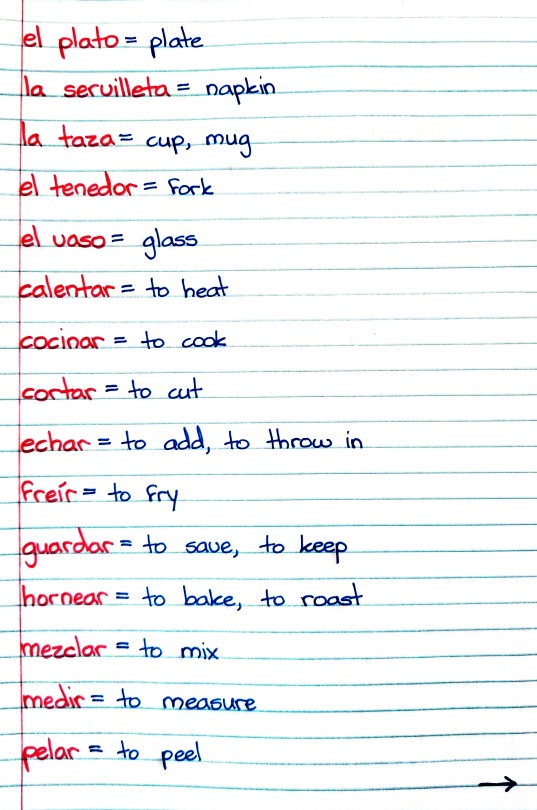 el plato = plate
la servilleta = napkin
la taza = cup, mug
el tenedor = fork
el vaso = glass
calentar = to heat
cocinar = to cook
cortar = to cut
echar = to add, to throw in
freír = to fry
guardar = to save, to keep
hornear = to bake, to roast
mezclar = to mix
medir = to measure
pelar = to peel
→